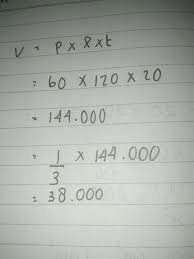 V = P x l x t
= 60 x 120 x 20
= 144.000
= 1/3 x 144.000
= 38.000